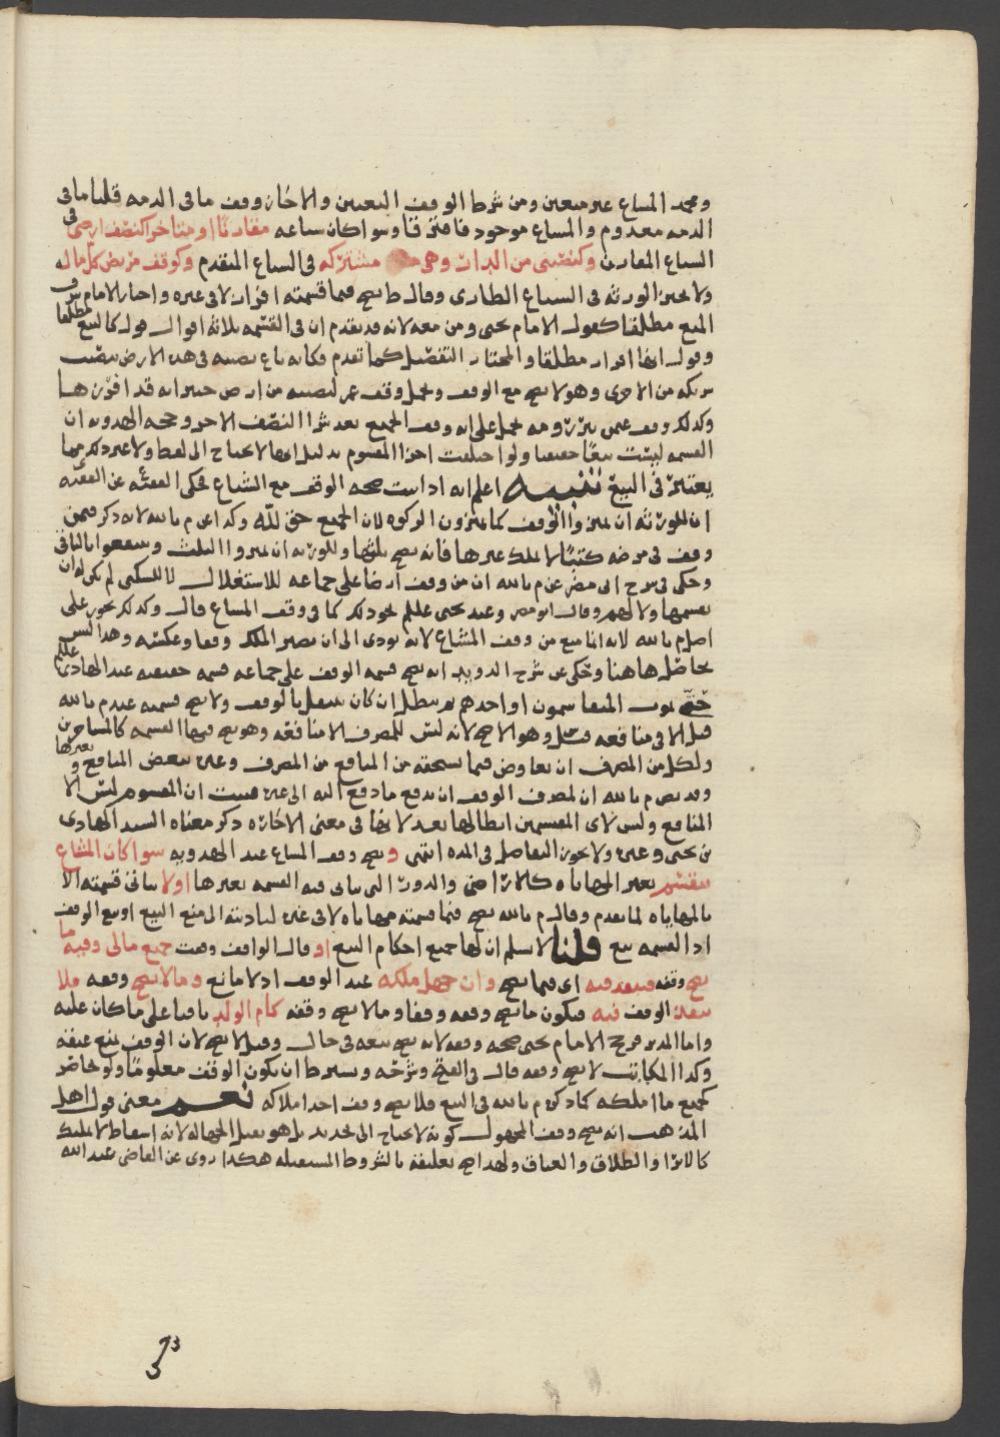 ومحمد المساع عير معين ومن شرط الوقف التعيين والاجاز وقف ما فى الدمه قلنا ما فى
الدمه معدوم والمساع موجود فافترقا وسوا كان ساعه مقارنًا او متاخرا كنصف ارضى فى
السياع المقارن وكنصيبى من الدار وهى مشتركه فى السياع المتقدم وكوقف مريض كل ماله
ولا يجيز الورثه فى السياع الطارى وقال ط يصح فيما قسمته افراز لا فى غيره واختار الامام شرف
المنع مطلقا كقول الامام يحيى ومن معه لانه قد تقدم ان فى القسمه ثلاثة اقوال قول كالبيع مطلقا
وقول انها افراز مطلقا والمختار التفصيل كما تقدم وكانه باع نصيبه فى هذه الارض بنصيب
شريكه من الاخرى وهو لا يصح مع الوقف ويحمل وقف عمر لنصيبه من ارض خيبر انه قد افرزها
وكذلك وقف عثمن بئر رومه يحمل على انه وقف الجميع بعد شرا النصف الاخر وحجه الهدويه ان
القسمه ليست بيعًا حقيقيا ولو اختلفت اجزا المقسوم بدليل انها لا تحتاج الى لفظ ولا غير ذلك مما
يعتبر فى البيع تنبيه اعلم انه اذا ثبت صحه الوقف مع الشياع فحكى الفقيه عن الفقيه
ان للورثه ان يميزوا الوقف كما يميزون الزكوه لان الجميع حق لله وكذا عن م بالله لانه ذكر فيمن
وقف فى مرضه كتبًا لا يملك غيرها فانه يصح ثلثها وللورثه ان يميزوا الثلث وينتفعوا بالباقى
وحكى فى شرح ابى مضر عن م بالله ان من وقف ارضا على جماعه للاستغلال لا للسكنى لم يكن لهم ان
يقسموها ولا لهم وقال ابو مضر وعند يحيى عليلم يجوز ذلك كما فى وقف المساع قال وكذلك يجوز على
اصل م بالله لانه انما منع من وقف المشاع لانه يودى الى ان يصير الملك وقفا وعكسه وهذا ليس
بحاصل هاهنا وحكى عن شرح الدويد انه يصح قسمه الوقف على جماعه قسمه حقيقيه عند الهادى عليلم
حتى يموت المتقاسمون او احدهم ثم يبطل ان كان ينتقل بالوقف ولا يصح قسمته عند م بالله
قيل الا فى منافعه قيل وهو الاصح لانه ليس للمصرف الا منافعه وهو يصح فيها القسمه كالمستاجرين
ولكل من المصرف ان يعاوض فيما يستحقه من المنافع من المصرف وغيره ببعض المنافع وبغيرها
وقد نص م بالله ان لمصرف الوقف ان يدفع ما دفع اليه الى غيره فثبت ان المقسوم ليس الا
المنافع وليس لاى المقتسمين ابطالها بعد لانها فى معنى الاجاره ذكر معناه السيد الهادى
بن يحيى وغيره ولا يجوز التفاضل فى المده انتهى ويصح وقف المساع عند الهدويه سوا كان المشاع
ينقسم بغير المهاياه كالاراضى والدور التى يتاتى فيه القسمه بغيرها اولا يتاتى قسمته الا
بالمهاياه لما تقدم وقال م بالله يصح فيما قسمته مهاياه لا فى غيره لتاديته الى منع البيع او بيع الوقف
اذ القسمه بيع قلنا لا نسلم ان لها جميع احكام البيع او قال الواقف وقفت جميع مالى وفيه ما
يصح وقفه فينفد فيه اى فيما يصح وان جهل ملكه عند الوقف اذ لا مانع وما لا يصح وقفه فلا
ينفذ الوقف فيه فيكون ما يصح وقفه وقفا وما لا يصح وقفه كام الولد باقيا على ما كان عليه
واما المدبر فرجح الامام يحيى صحه وقفه لانه يصح بيعه فى حال وقيل لا يصح لان الوقف يمنع عتقه
وكذا المكاتب لا يصح وقفه قال فى الفتح وشرحه ويشترط ان يكون الوقف معلومًا ولو حاضر
كجميع ما املكه كما ذكره م بالله فى البيع فلا يصح وقف احد املاكه نعم معنى قول اهل
المذهب انه يصح وقف المجهول كونه لا يحتاج الى تحديد بل هو يقبل الجهاله لانه اسقاط لا تمليك
كالابرا والطلاق والعتاق ولهذا صح تعليقه بالشروط المستقبله هكذا روى عن القاضى عبد الله